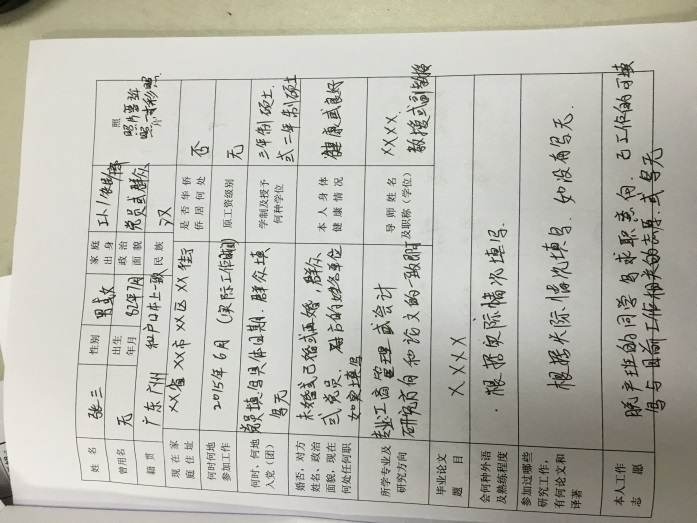 姓名 张三 性别 男或女 家庭出身 工人/农民/干部 照
曾用名 无 出生年月 82年7月 政治面貌 党员或群众
籍贯 广东广州 和户口本上一致 民族 汉
现在家庭住址 XX省XX市XX区XX住宅 是否华侨侨居何处 否
何时何地参加工作 2015年6月(实际工作时间) 原工资级别 无
何时、何地入党(团) 党员填写具体日期,群众填写无 学制及授予何种学位 三年制硕士或二年制硕士
婚否,对方姓名、政治面貌,现在何处任何职 未婚或已婚或再婚,群众或党员,对方的姓名单位如实填写 本人身体健康情况 健康或良好
所学专业及研究方向 专业:工商管理或会计 研究方向和论文的一致即可 导师姓名及职称(学位) XXXX 教授或副教授
毕业论文题目 XXXX
会何种外语及熟练程度 根据实际情况填写
参加过哪些研究工作,有何论文和译著 根据实际情况填写,如没有写无
本人工作志愿 脱产班的同学写求职意向,已工作的可填写与目前工作相关的志愿.或写无